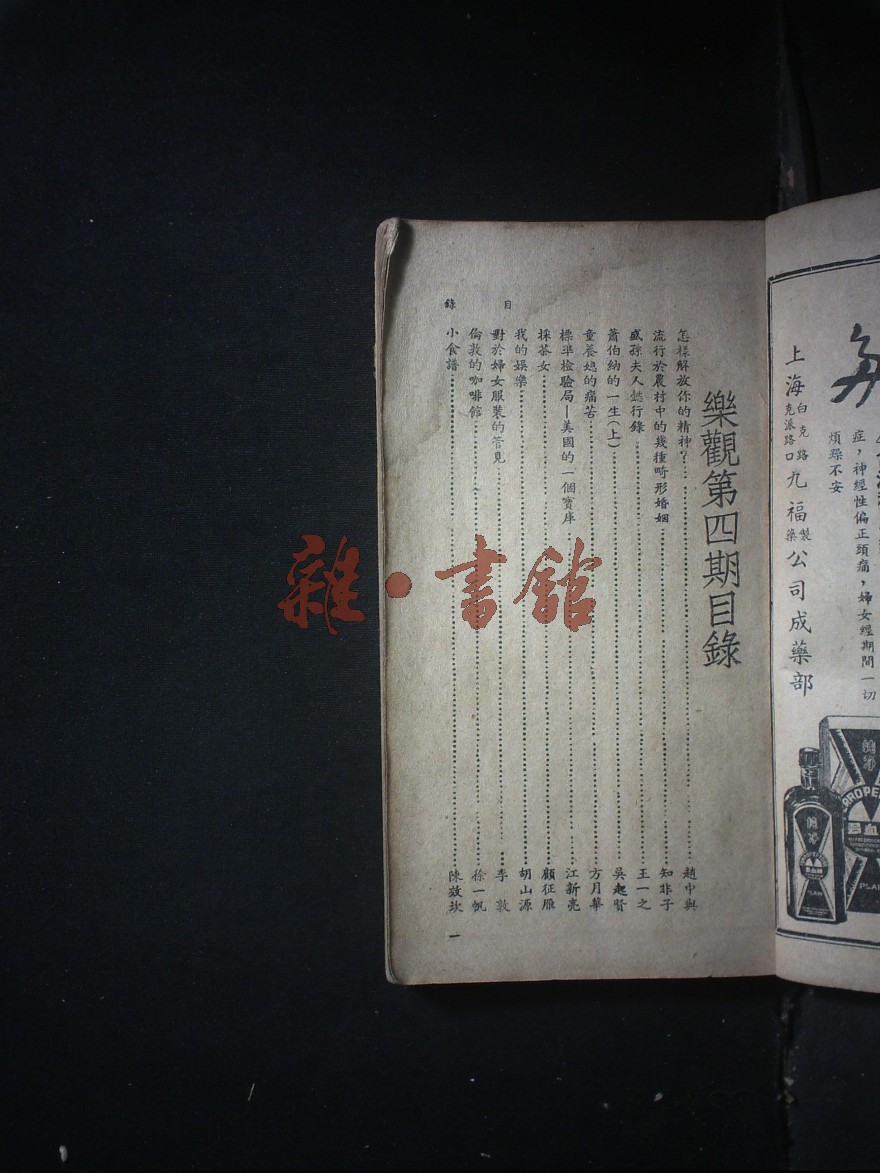 樂觀第四期目錄
目錄
怎樣解放你的精神？……趙中與
流行於農村中的幾種畸形婚姻……知非子
盛孫夫人懿行錄……王一之
蕭伯納的一生（上）……吳起賢
童養媳的痛苦……方月華
標準檢驗局—美國的一個寶庫……江新亮
採茶女……顧征雁
我的娛樂……胡山源
對於婦女服裝的管見……李敦
倫敦的咖啡館……徐一帆
小食譜……陳效坎
一
症，神經性偏正頭痛，婦女經期間一切
煩躁不安
上海白克路克派路口九福製藥公司成藥部
PLAN
雜·書館